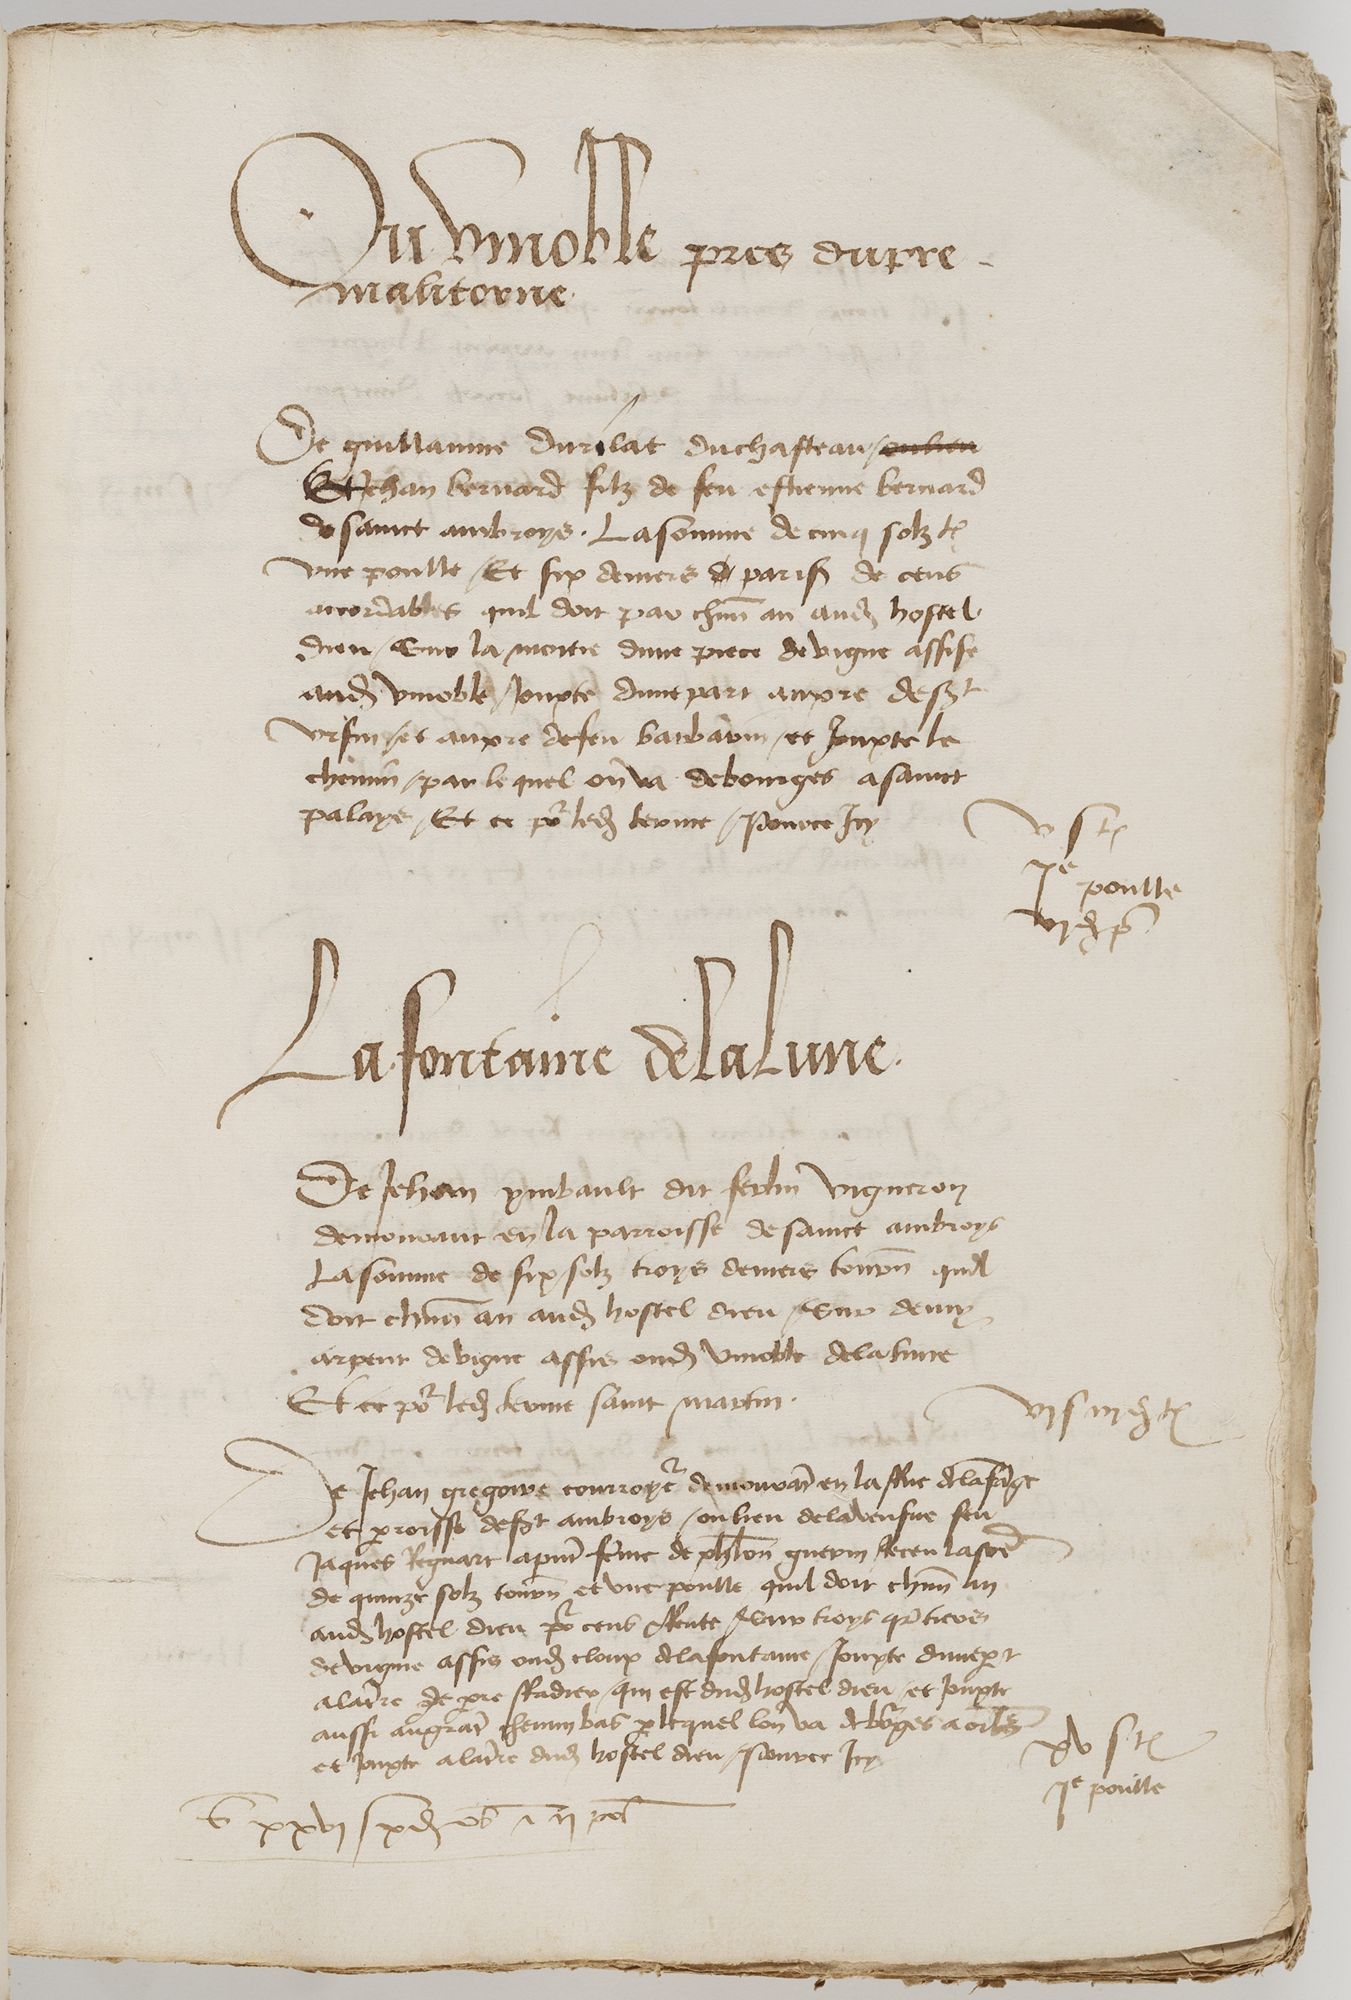 Ou vinoble pres du pre
malitorne
De guillaume durlat du chasteau / ou lieu
Et Jehan bernard filz de feu estienne bernard
de sainct ambroys . La somme de cinq solz t
une poulle / Et six deniers paris de cens
acordables quil doit par chun an aud hostel
dieu / Sur la moitie dune piece de vigne assise
aud vinoble / Jouxte dune part au pre de st
ursin / et au pre de feu barbarin / et Jouxte le
chemin / par lequel on va de bourges a sainct
palays / Et ce pr led terme / Pource Icy
v s t
Je poulle
vj d p
La fontaine de la Lune .
De Jehan ymbault dit ferlin vigneron
demourant en la parroisse de sainct ambroys
La somme de six solz troys deniers tourn quil
doit chun an aud hostel dieu / Sur demy
arpent de vigne assis oud vinoble de la lune
Et ce pr led terme saint martin .
vj s iij d t
De Jehan gregoire courroyer demourat en la Rue de la
et proisse de st ambroys / ou lieu de la veufve feu
Jaques Regnart apnt feme de guerin la some
de quinze solz tourn et une poulle quil doit chun an
aud hostel dieu pr cens Rente / Sur troys qrtiers
de vigne assis oud cloux de la fontaine / Jouxte dune prt
a la tre de pre / qui est dud hostel dieu / et Jouxte
aussi au grat chemin bas pr lequel lon va de bourges a
et Jouxte a la tre dud hostel dieu / Pource Icy
xv s t
Je poulle
xxvj s x d ij pol